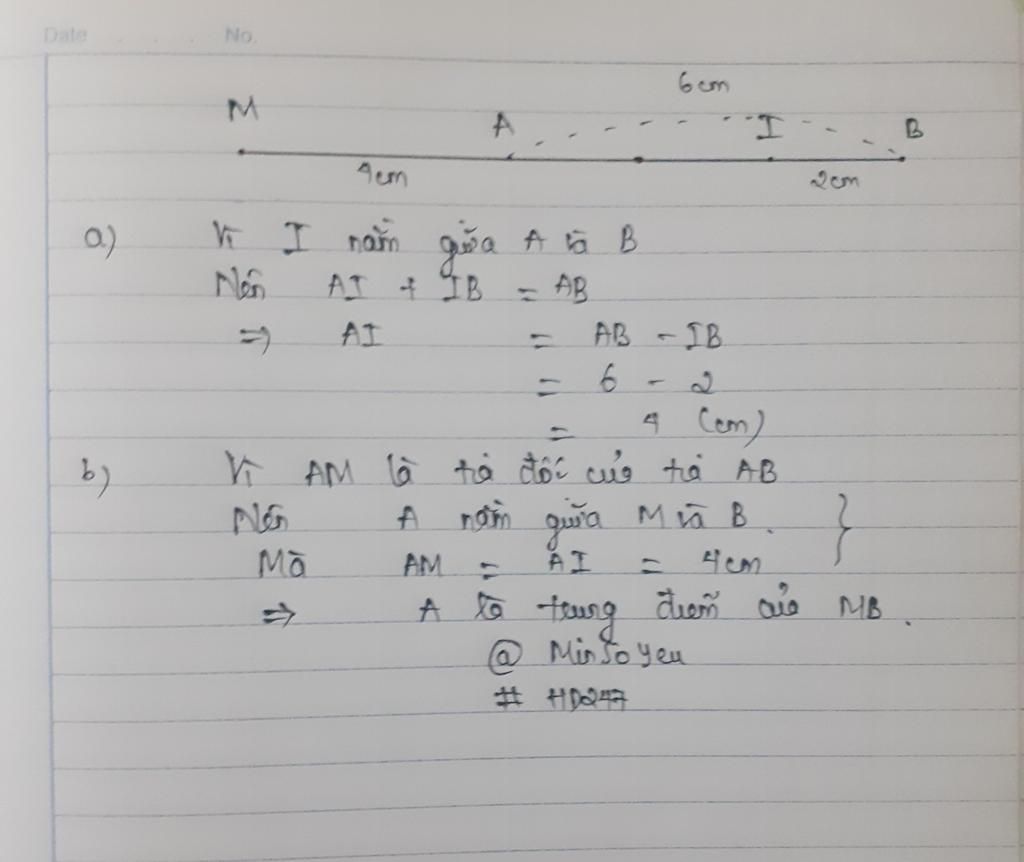 Date . . . No.
6cm
M A I B
4cm 2cm
a) Vì I nằm giữa A và B
Nên AI + IB = AB
=> AI = AB - IB
= 6 - 2
= 4 (cm)
b) Vì AM là tia đối của tia AB
Nên A nằm giữa M và B. }
Mà AM = AI = 4cm
=> A là trung điểm của MB.
@ MinSoyeu
# HD247